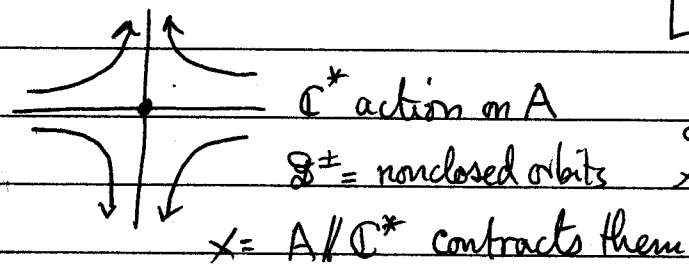 ℂ* action on A
𝔅± = nonclosed orbits
X = A // ℂ* contracts them